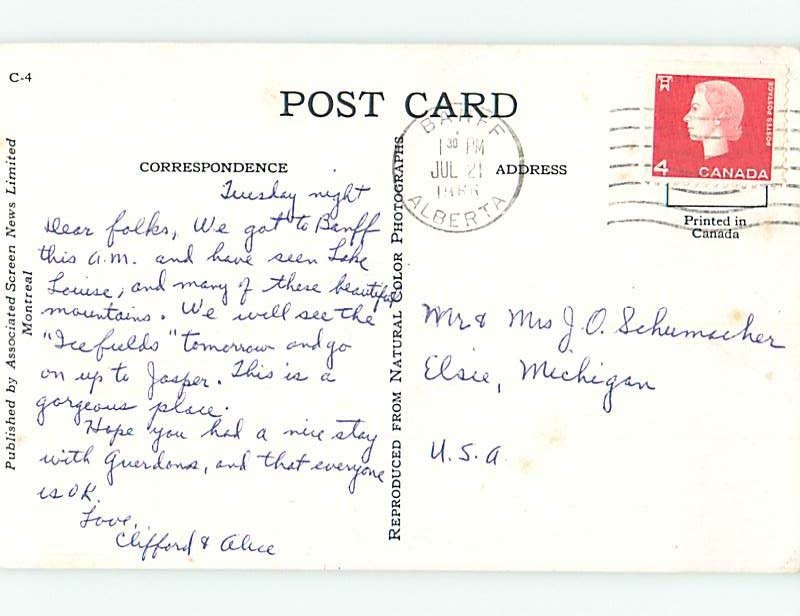 C-4
POST CARD
CORRESPONDENCE
ADDRESS
Published by Associated Screen News Limited
Montreal
REPRODUCED FROM NATURAL COLOR PHOTOGRAPHS
Tuesday night
Dear folks, We got to Banff
this a.m. and have seen Lake
Louise, and many of these beautiful
mountains. We will see the
"Icefields" tomorrow and go
on up to Jasper. This is a
gorgeous place.
Hope you had a nice stay
with Guerdons, and that everyone
is OK.
Love,
Clifford & Alice
BANFF
1 30 PM
JUL 21
ALBERTA
4
CANADA
POSTES POSTAGE
Printed in
Canada
Mr & Mrs J. O. Schumacher
Elsie, Michigan
U.S.A.